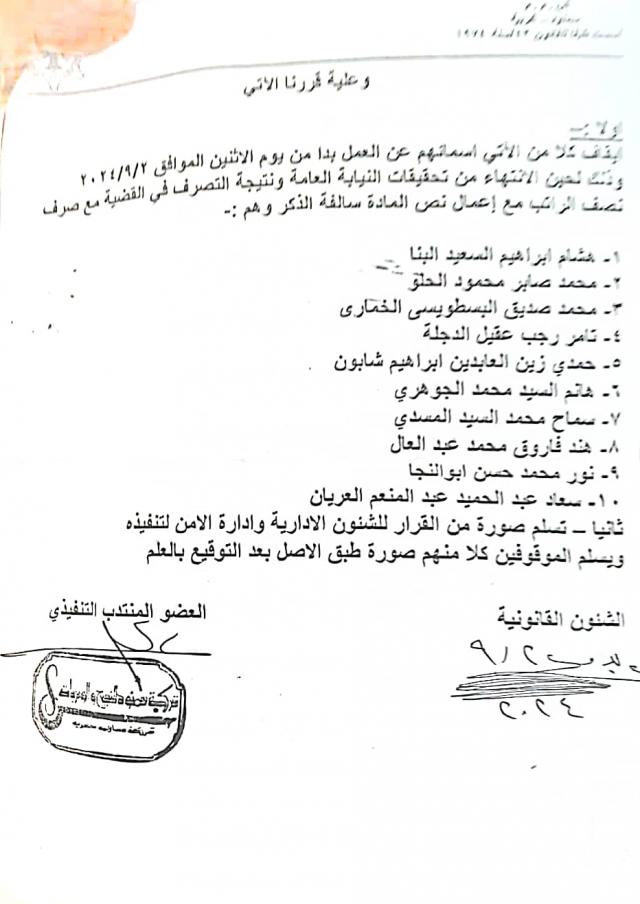 وعلية قررنا الاتي
اولا :-
ايقاف كلا من الأتي اسمائهم عن العمل بدا من يوم الاثنين الموافق ٢٠٢٤/٩/٢
وذلك لحين الانتهاء من تحقيقات النيابة العامة ونتيجة التصرف في القضية مع صرف
نصف الراتب مع إعمال نص المادة سالفة الذكر وهم :-
١- هشام ابراهيم السعيد البنا
٢- محمد صابر محمود الحلو
٣- محمد صديق البسطويسى الخمارى
٤- تامر رجب عقيل الدجلة
٥- حمدي زين العابدين ابراهيم شابون
٦- هانم السيد محمد الجوهري
٧- سماح محمد السيد المسدي
٨- هند فاروق محمد عبد العال
٩- نور محمد حسن ابوالنجا
١٠- سعاد عبد الحميد عبد المنعم العريان
ثانيا – تسلم صورة من القرار للشئون الادارية وادارة الامن لتنفيذه
ويسلم الموقوفين كلا منهم صورة طبق الاصل بعد التوقيع بالعلم
الشئون القانونية
العضو المنتدب التنفيذي
٩/٢
٢٠٢٤